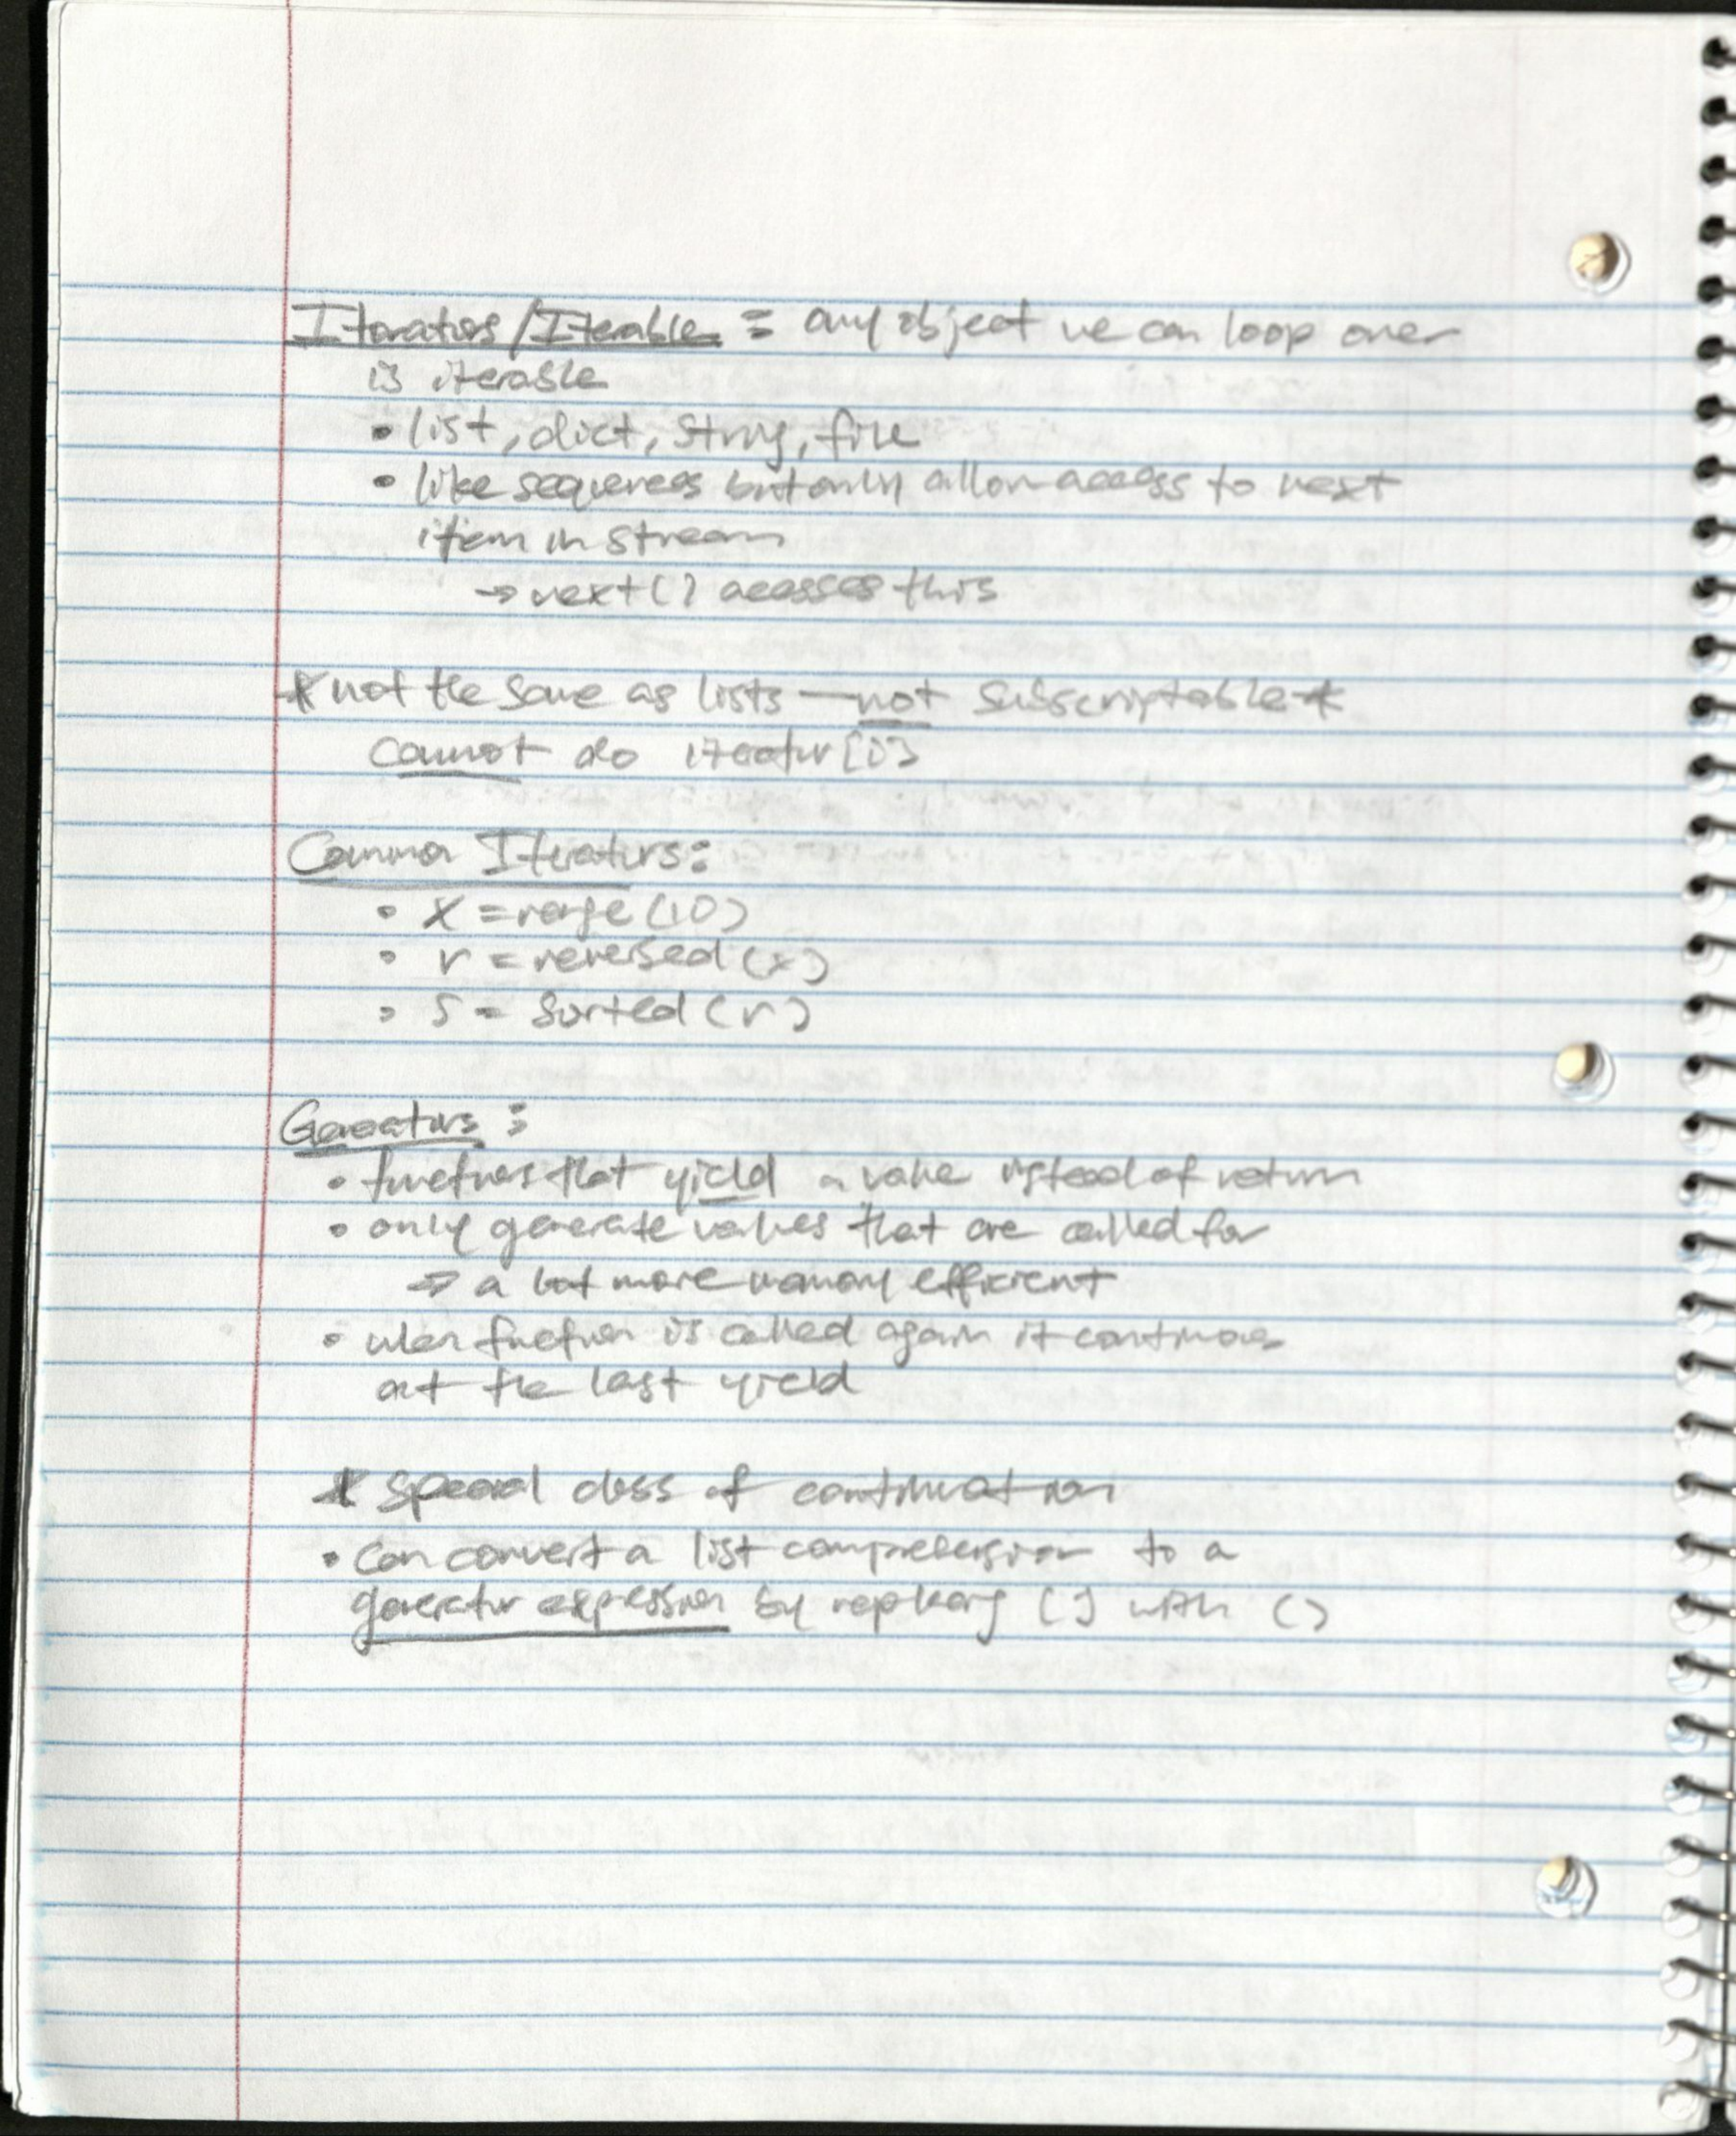 Iterators/Iterable : any object we can loop over
is iterable
• list, dict, string, file
• like sequences but only allow access to next
item in stream
→ next() acesses this
* not the same as lists — not subscriptable *
cannot do iterator[0]
Common Iterators:
• x = range(10)
• r = reversed(x)
• s = sorted(r)
Generators :
• functions that yield a value instead of return
• only generate values that are called for
⇒ a lot more memory efficient
• when function is called again it continues
at the last yield
* special class of continuation
• can convert a list comprehension to a
generator expression by replacing [] with ()